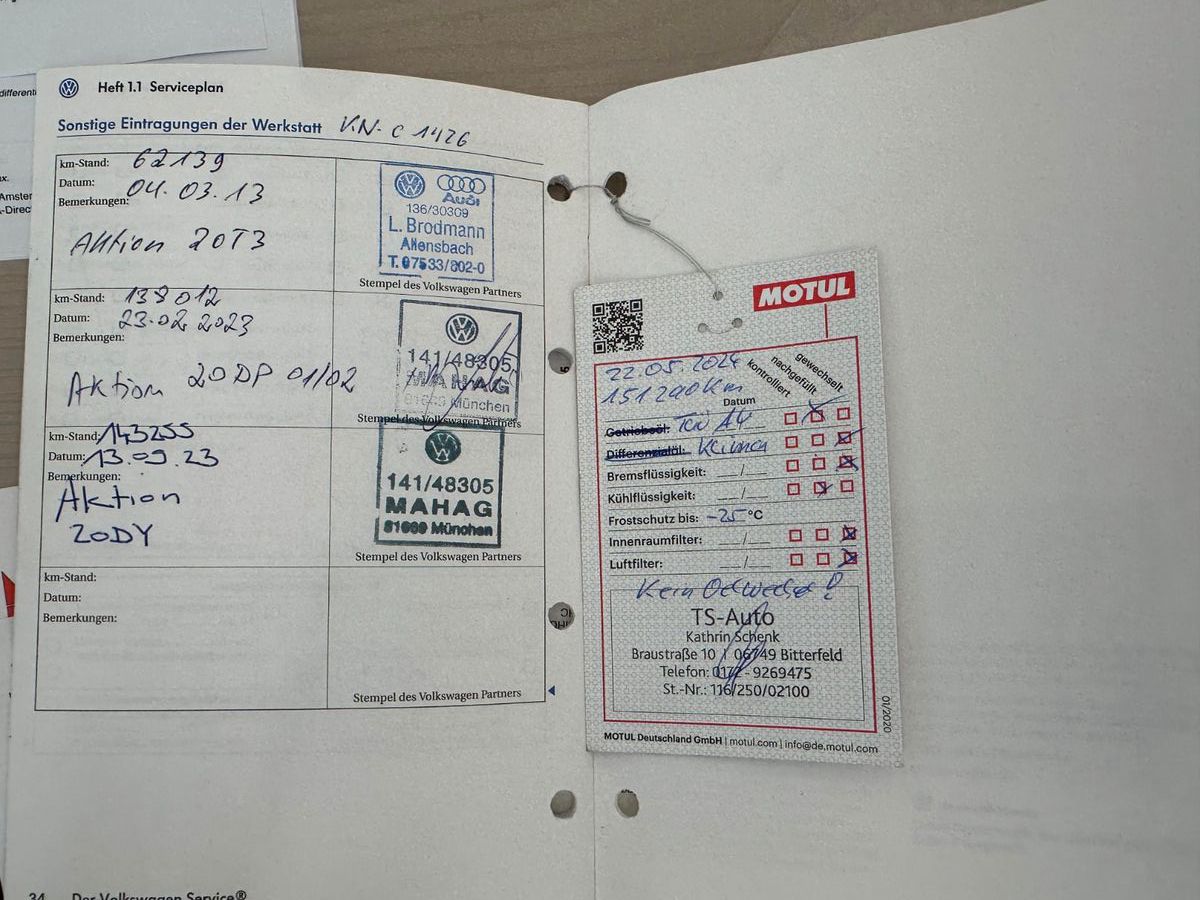 Heft 1.1 Serviceplan
Sonstige Eintragungen der Werkstatt KN-C 1426
km-Stand: 62139
Datum: 04.03.13
Bemerkungen:
Aktion 20T3
Audi
136/30309
L. Brodmann
Allensbach
T. 07533/802-0
Stempel des Volkswagen Partners
km-Stand: 138012
Datum: 23.02.2023
Bemerkungen:
Aktion 20DP 01/02
141/48305
MAHAG
81669 München
Stempel des Volkswagen Partners
km-Stand: 143255
Datum: 13.09.23
Bemerkungen:
Aktion
20DY
141/48305
MAHAG
81669 München
Stempel des Volkswagen Partners
km-Stand:
Datum:
Bemerkungen:
Stempel des Volkswagen Partners
34 Der Volkswagen Service®
MOTUL
22.05.2024
151290 Km
Datum
kontrolliert
nachgefüllt
gewechselt
Getriebeöl: TÜV AU
Differenzialöl:
Bremsflüssigkeit: __/__
Kühlflüssigkeit: __/__
Frostschutz bis: -25 °C
Innenraumfilter: __/__
Luftfilter: __/__
Kein
TS-Auto
Kathrin Schenk
Braustraße 10 | 06749 Bitterfeld
Telefon: 0172 - 9269475
St.-Nr.: 116/250/02100
01/2020
MOTUL Deutschland GmbH | motul.com | info@de.motul.com